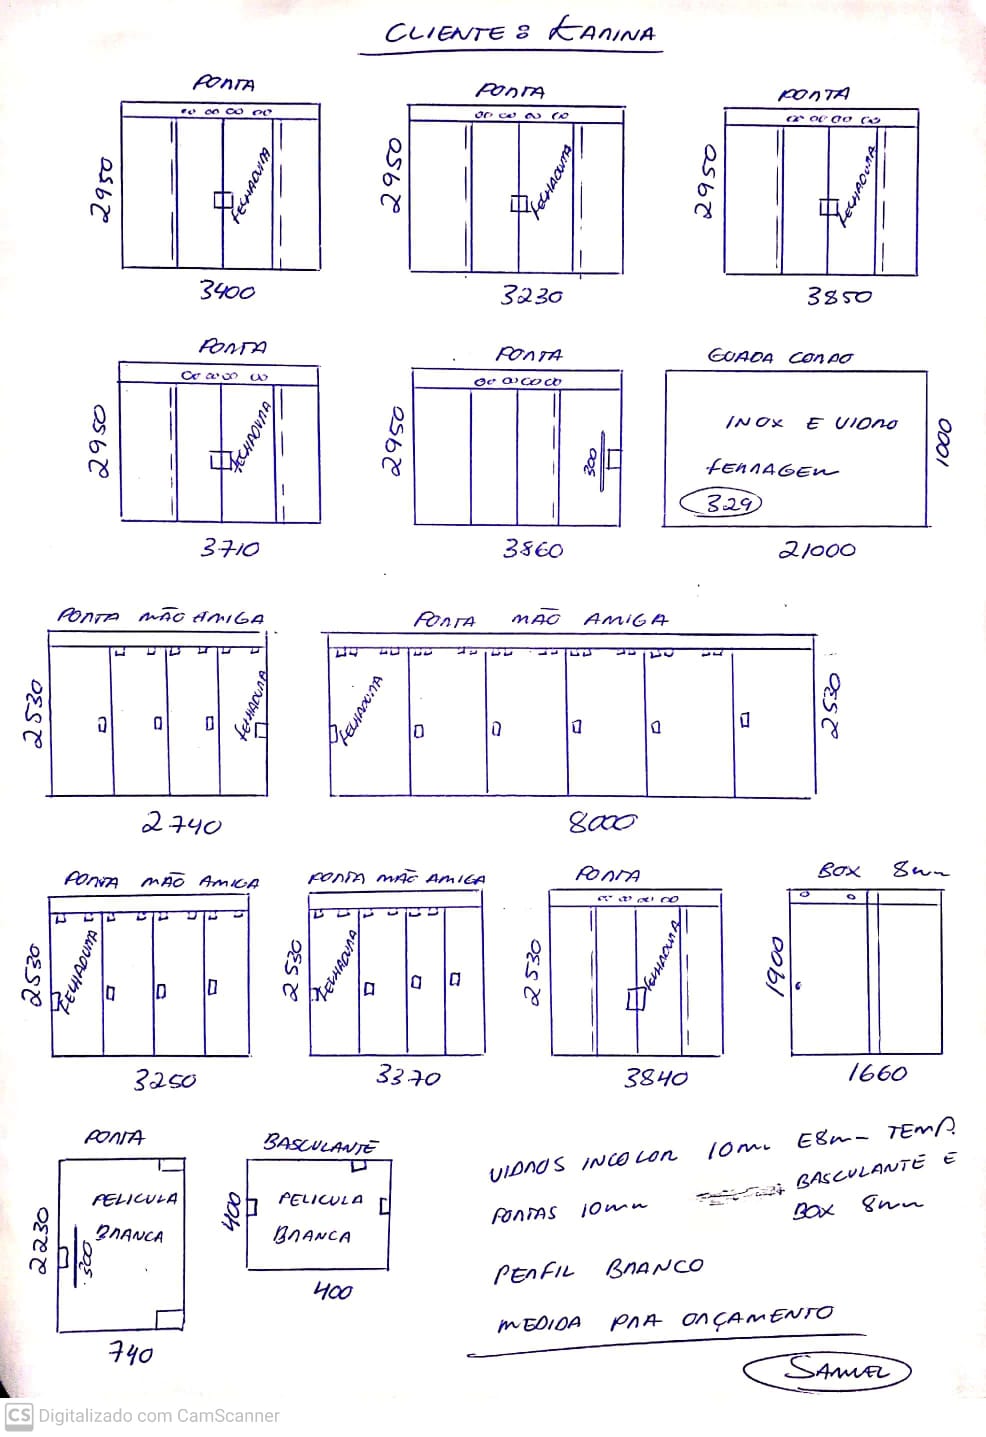 CLIENTE: KARINA
PORTA
2950
FECHADURA
3400
PORTA
2950
FECHADURA
3230
PORTA
2950
FECHADURA
3850
PORTA
2950
FECHADURA
3710
PORTA
2950
300
3860
GUADA CORPO
INOX E VIDRO
FERRAGEM
329
1000
21000
PORTA MÃO AMIGA
2530
FECHADURA
2740
PORTA MÃO AMIGA
FECHADURA
2530
8000
PORTA MÃO AMIGA
2530
FECHADURA
3250
PORTA MÃO AMIGA
2530
FECHADURA
3370
PORTA
2530
FECHADURA
3840
BOX 8mm
1900
1660
PORTA
2230
PELICULA
BRANCA
300
740
BASCULANTE
400
PELICULA
BRANCA
400
VIDROS INCOLOR 10mm E 8mm TEMP.
PORTAS 10mm BASCULANTE E
BOX 8mm
PERFIL BRANCO
MEDIDA PRA ORÇAMENTO
SAMUEL
CS Digitalizado com CamScanner